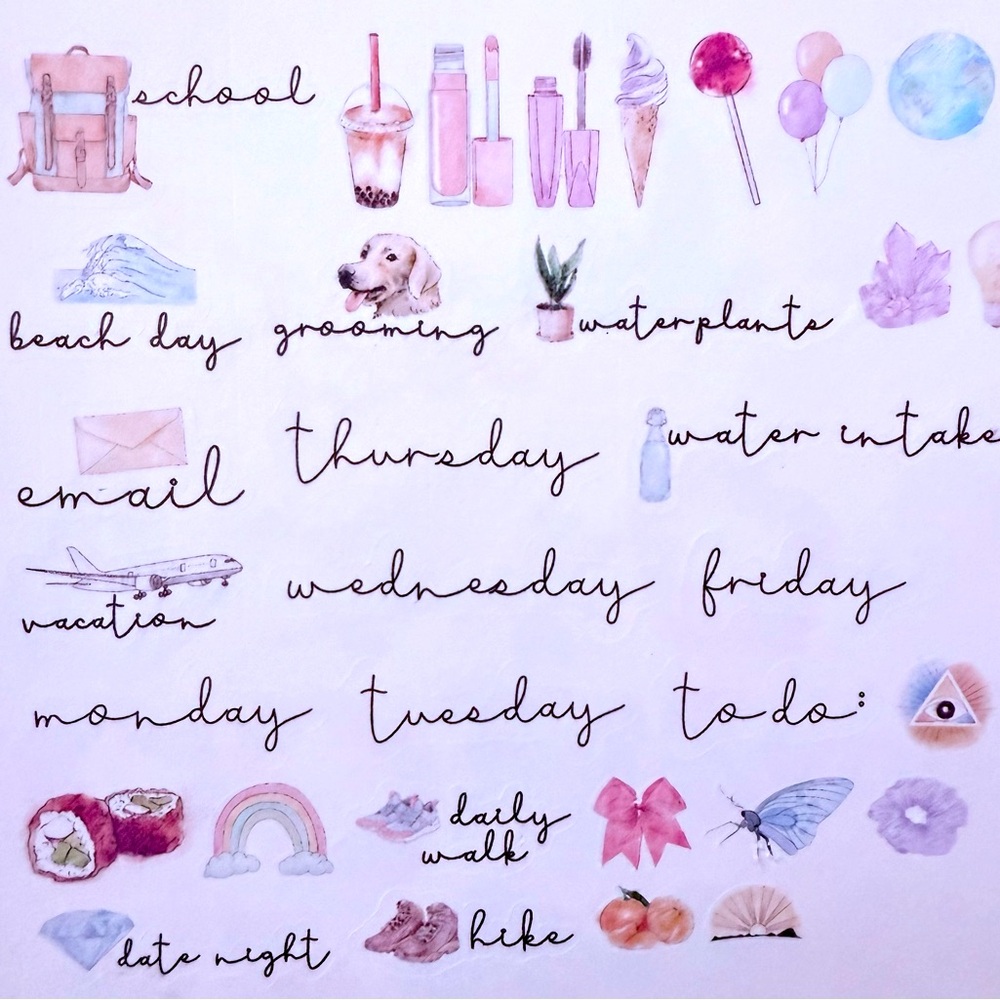 school
beach day
grooming
waterplants
email
thursday
water intake
vacation
wednesday
friday
monday
tuesday
to do:
daily
walk
date night
hike